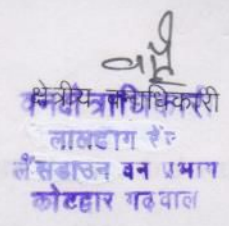 क्षेत्रीय वनाधिकारी
वनक्षेत्राधिकारी
लालढांग रेंज
लैंसडाउन वन प्रभाग
कोटद्वार गढ़वाल